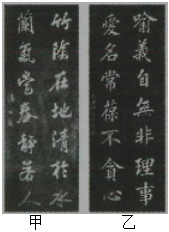 竹陰在地清於水
蘭氣當春靜若人
甲
喻義自無非理事
愛名常葆不貪心
乙